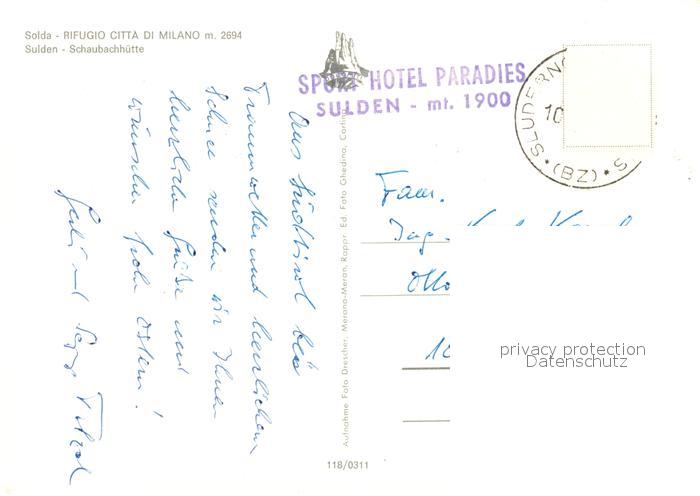 Solda - RIFUGIO CITTÀ DI MILANO m. 2694
Sulden - Schaubachhütte
SPORT HOTEL PARADIES
SULDEN - mt. 1900
SLUDERNO
10
(BZ)
S
Aus Südtirol bei
Traumwetter und herrlichem
Schnee senden wir Ihnen
herzliche Grüße und
wünschen frohe Ostern!
und
Fam.
Ing.
Otto
10
Aufnahme Foto Drescher, Merano-Meran, Rappr. Ed. Foto Ghedina, Cortina
118/0311
privacy protection
Datenschutz